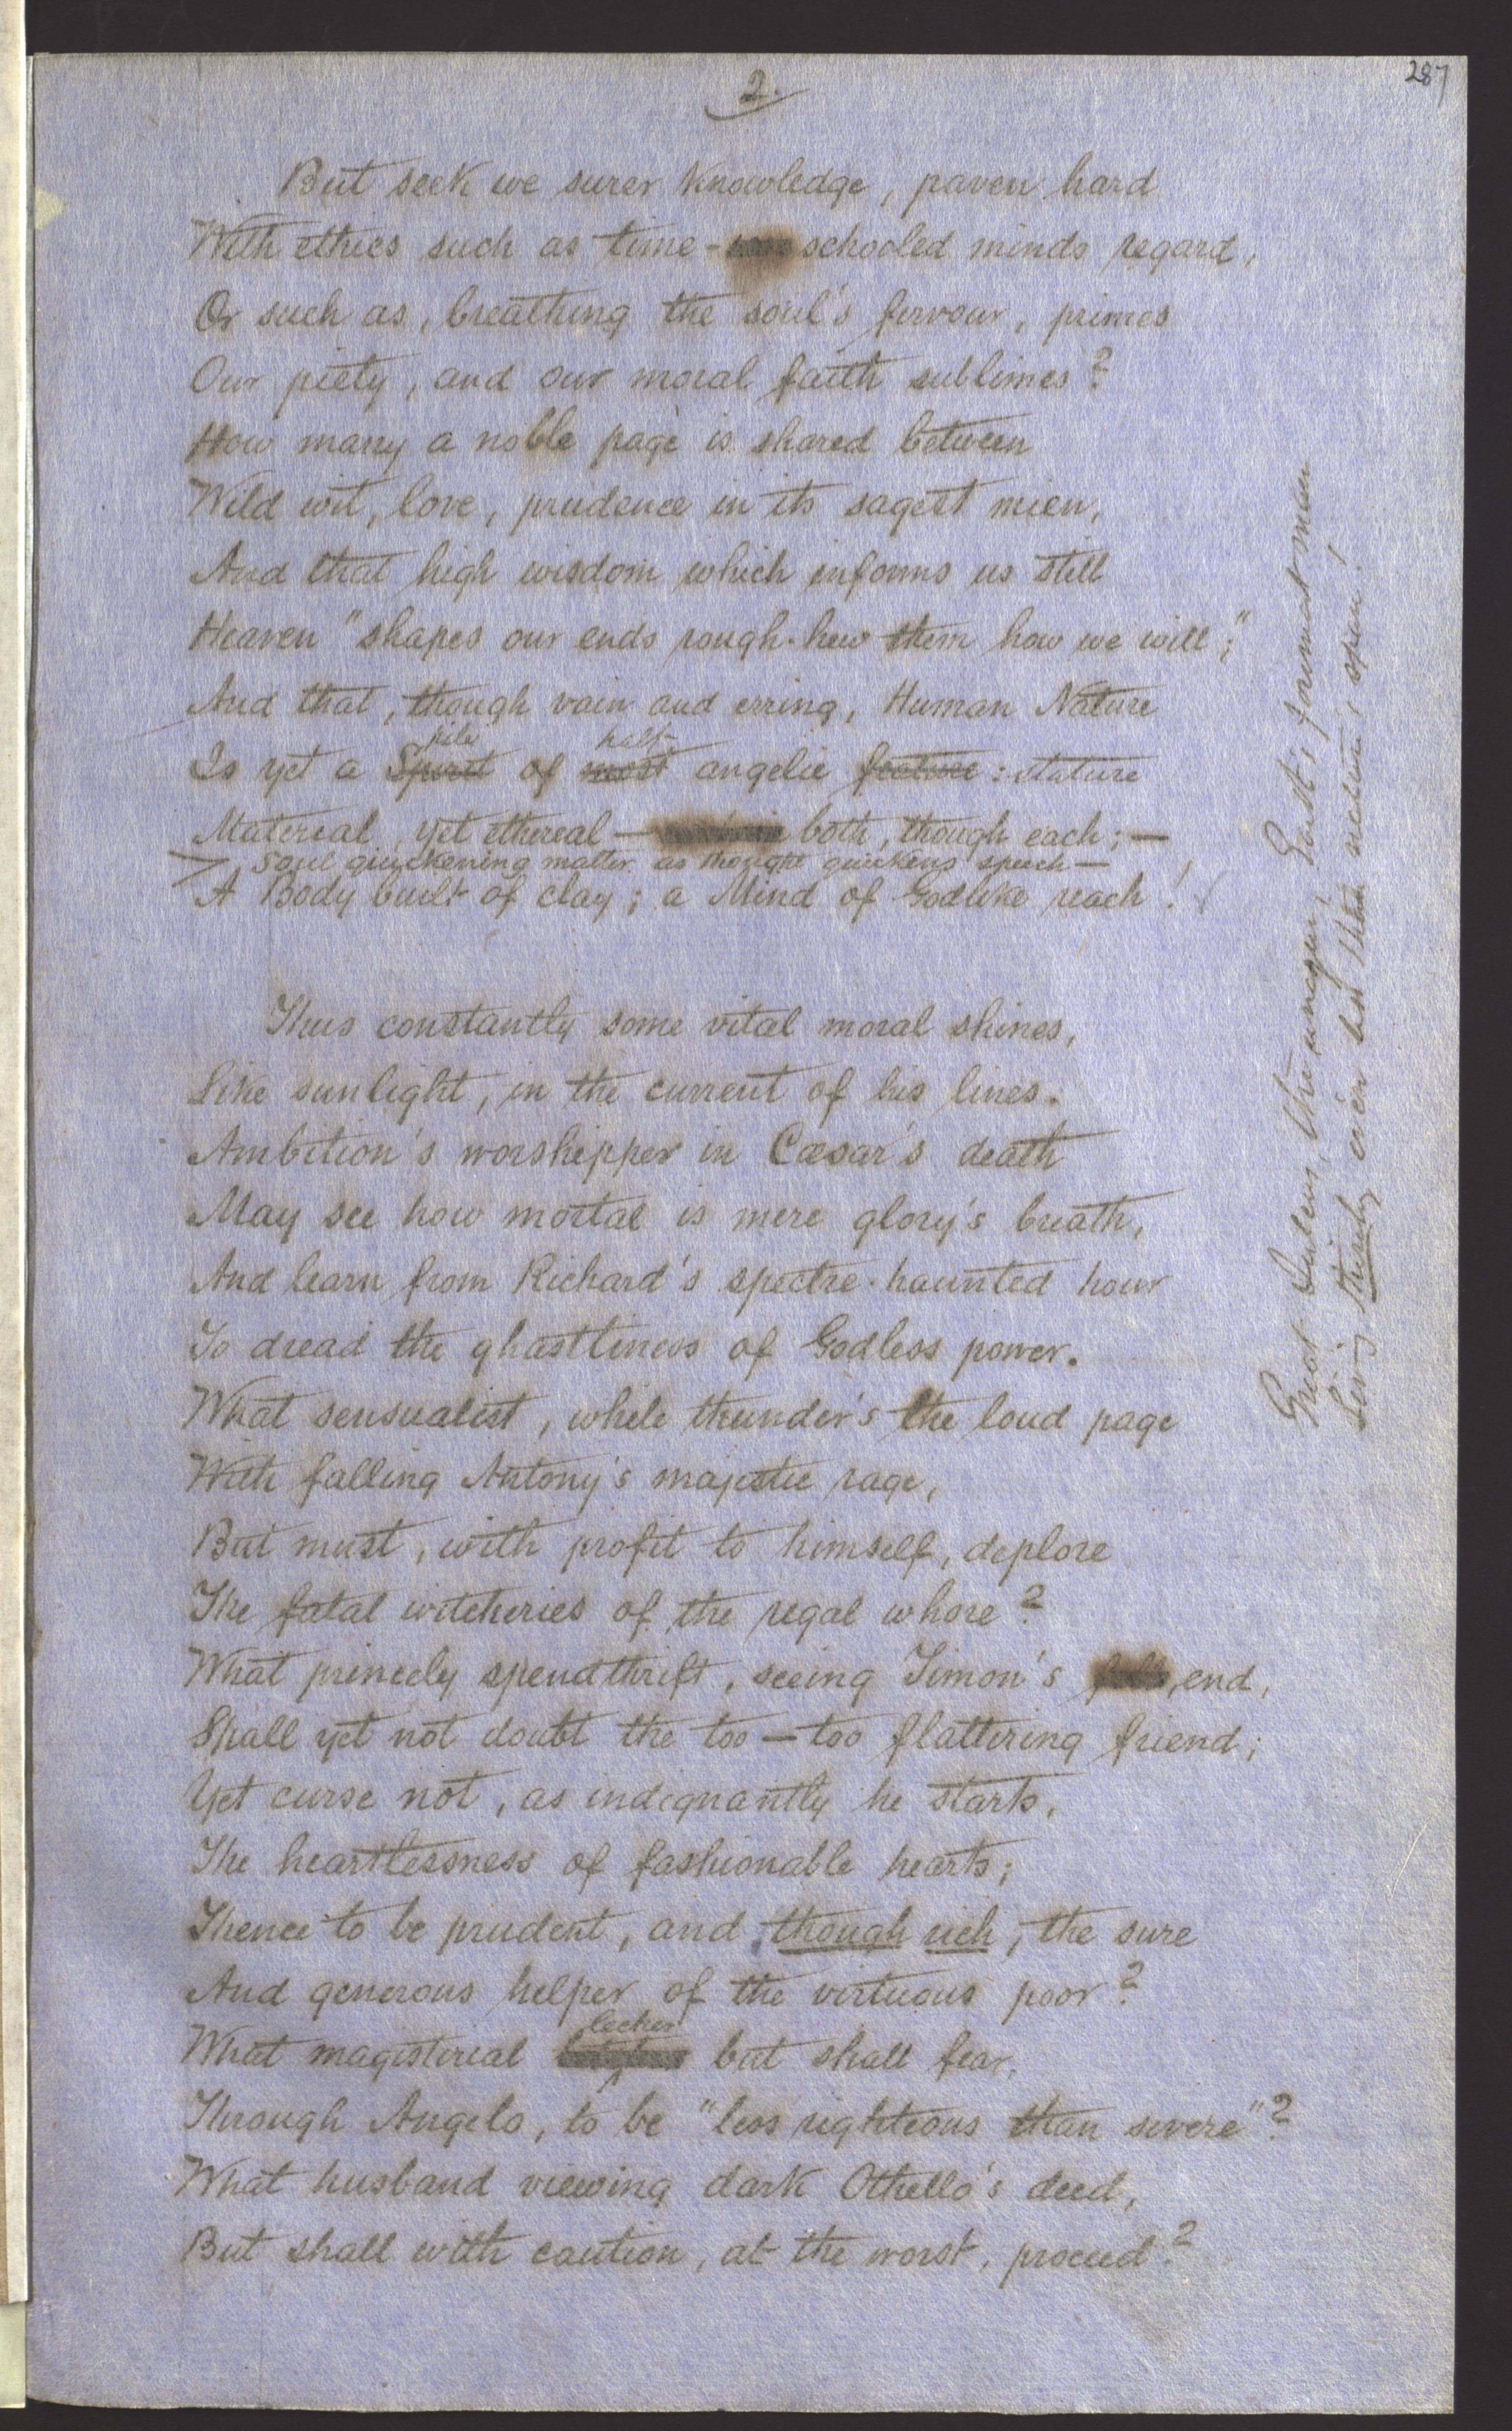 287
2.
But seek we surer knowledge, paven hard
With ethics such as time-schooled minds regard,
Or such as, breathing the soul's fervour, primes
Our piety, and our moral faith sublimes?
How many a noble page is shared between
Wild wit, love, prudence in its sagest mien,
And that high wisdom which informs us still
Heaven "shapes our ends rough-hew them how we will;"
And that, though vain and erring, Human Nature
pile half-
Is yet a Spirit of most angelic feature: stature
Material, yet ethereal— both, though each;—
Soul quickening matter as thought quickens speech—
A Body built of clay; a Mind of Godlike reach!
Thus constantly some vital moral shines,
Like sunlight, in the current of his lines.
Ambition's worshipper in Cæsar's death
May see how mortal is mere glory's breath,
And learn from Richard's spectre-haunted hour
To dread the ghastliness of Godless power.
What sensualist, while thunder's the loud page
With falling Antony's majestic rage,
But must, with profit to himself, deplore
The fatal witcheries of the regal whore?
What princely spendthrift, seeing Timon's end,
Shall yet not doubt the too—too flattering friend;
Yet curse not, as indignantly he starts,
The heartlessness of fashionable hearts;
Thence to be prudent, and, though rich, the sure
And generous helper of the virtuous poor?
lecher
What magisterial but shall fear,
Through Angelo, to be "less righteous than severe"?
What husband viewing dark Othello's deed,
But shall with caution, at the worst, proceed?
Great Julius, the unequal'd, Earth's foremost man
Living thirsty cries but then span!